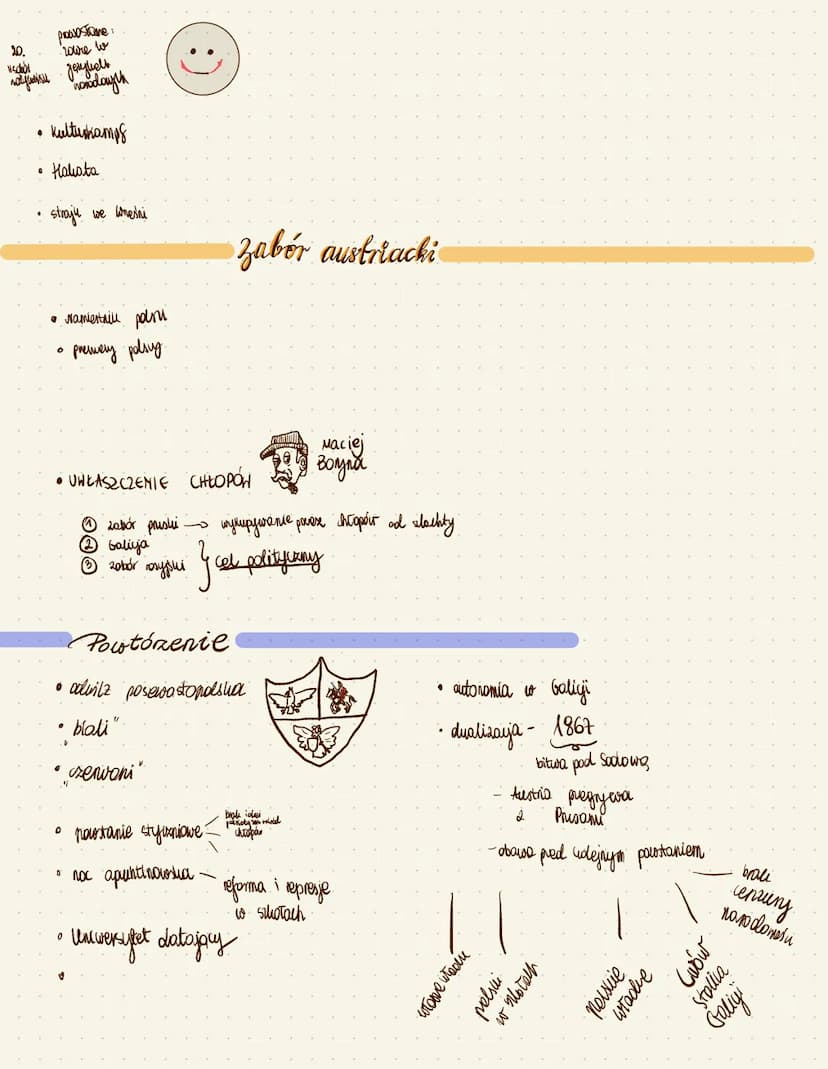 20.
pozostane:
zawsze w
językach
narodowych
• Kulturkampf
• Hakata
• strajk we Wrześni
Zabór austriacki
• namiestnik polski
• premierzy polscy
Maciej
Boryna
• UWŁASZCZENIE CHŁOPÓW
① zabór pruski → wykupywanie przez chłopów od szlachty
② Galicja
③ zabór rosyjski } cel polityczny
Powtórzenie
• odwilż posewastopolska
• "biali"
• "czerwoni"
• powstanie styczniowe
brak idei
chłopów
• noc apuchtinowska
reforma i represje
w szkołach
• Uniwersytet Latający
• autonomia w Galicji
• dualizacja - 1867
bitwa pod Sadową
- Austria przegrywa
z Prusami
- obawa przed kolejnym powstaniem
brak
cenzury
narodowości
polski
w szkołach
polskie
władze
Lwów
stolica
Galicji